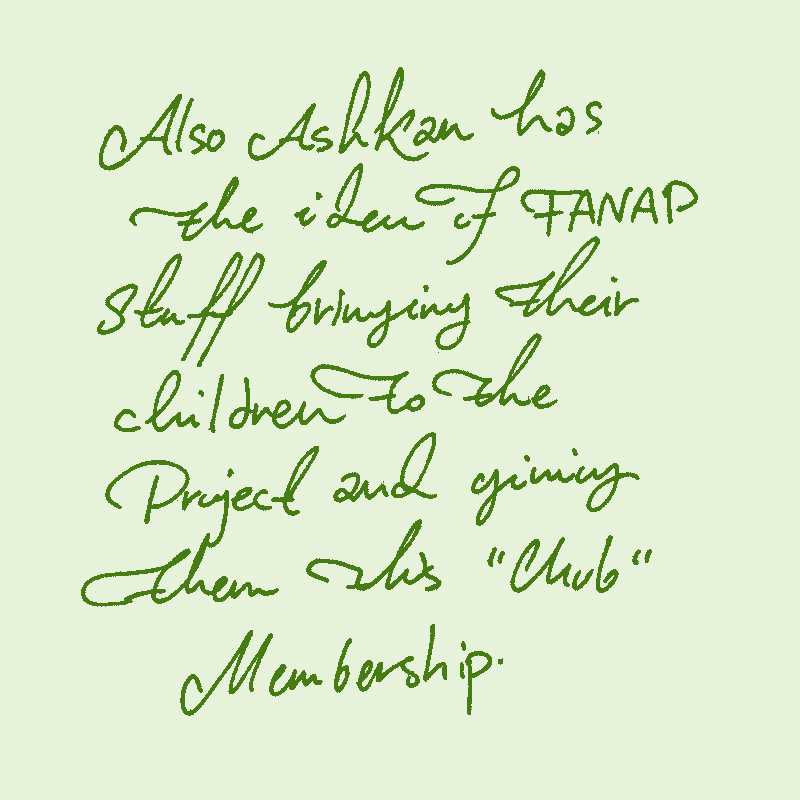 Also Ashkan has
the idea of FANAP
stuff bringing their
children to the
Project and giving
them this "Club"
Membership.